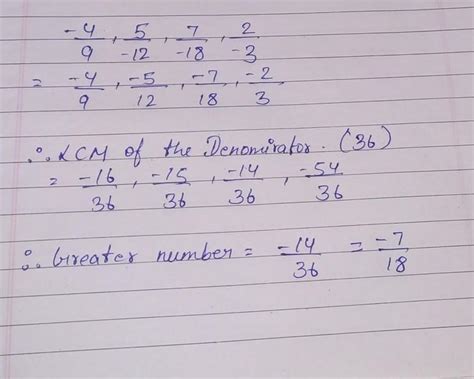 -4/9, 5/-12, 7/-18, 2/-3
= -4/9, -5/12, -7/18, -2/3
∴ LCM of the Denominator. (36)
= -16/36, -15/36, -14/36, -54/36
∴ Greater number = -14/36 = -7/18